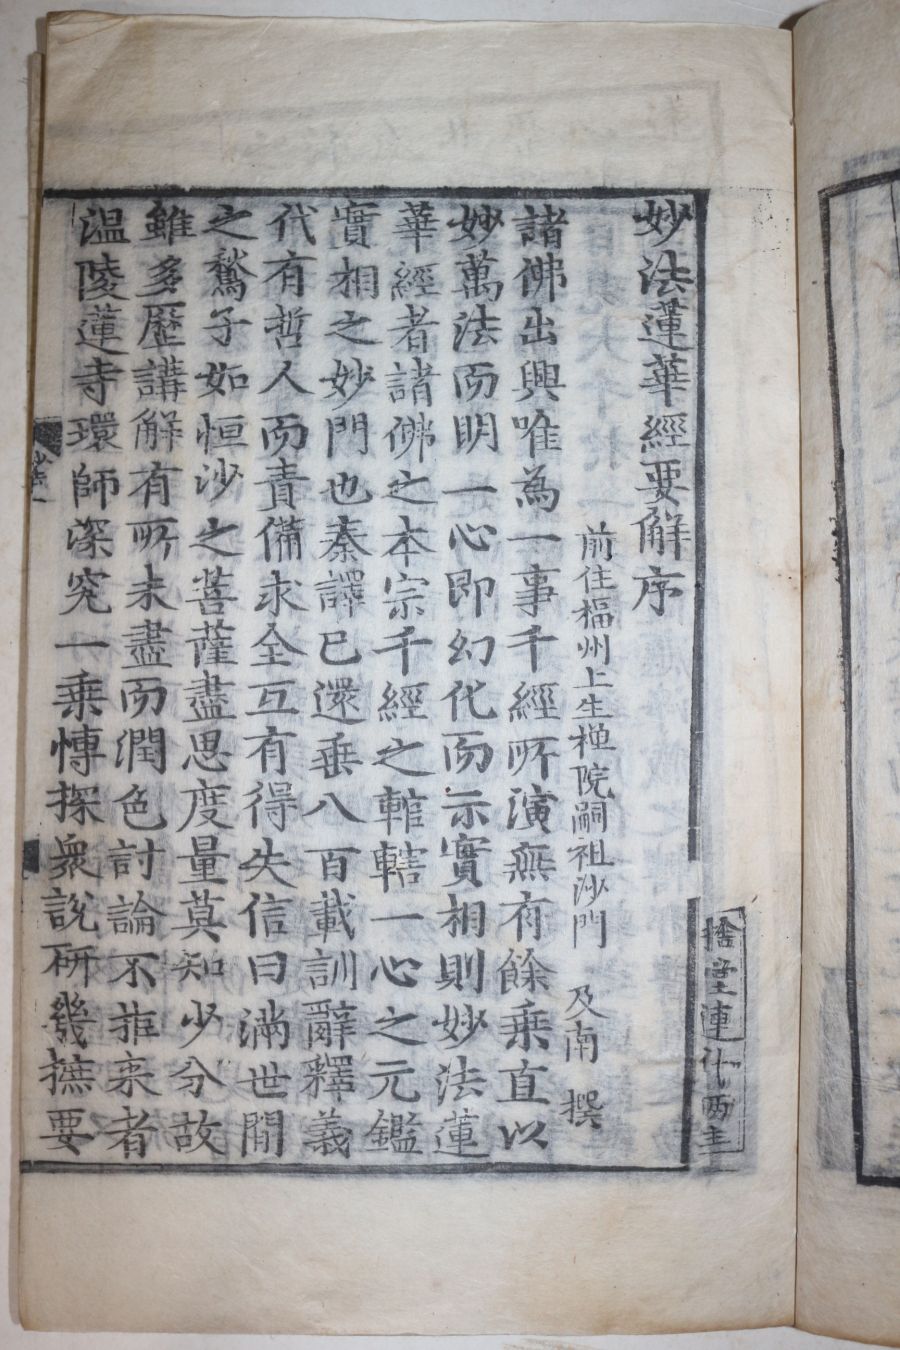 妙法蓮華經要解序
前住福州上生禪院嗣祖沙門 及南 撰
諸佛出興唯為一事千經所演無有餘乘直以
妙萬法而明一心即幻化而示實相則妙法蓮
華經者諸佛之本宗千經之輨轄一心之元鑑
實相之妙門也秦譯已還垂八百載訓辭釋義
代有哲人而責備求全互有得失信曰滿世間
之鶖子如恒沙之菩薩盡思度量莫知少分故
雖多歷講解有所未盡而潤色討論不菲來者
温陵蓮寺環師深究一乘愽探衆說研幾摭要